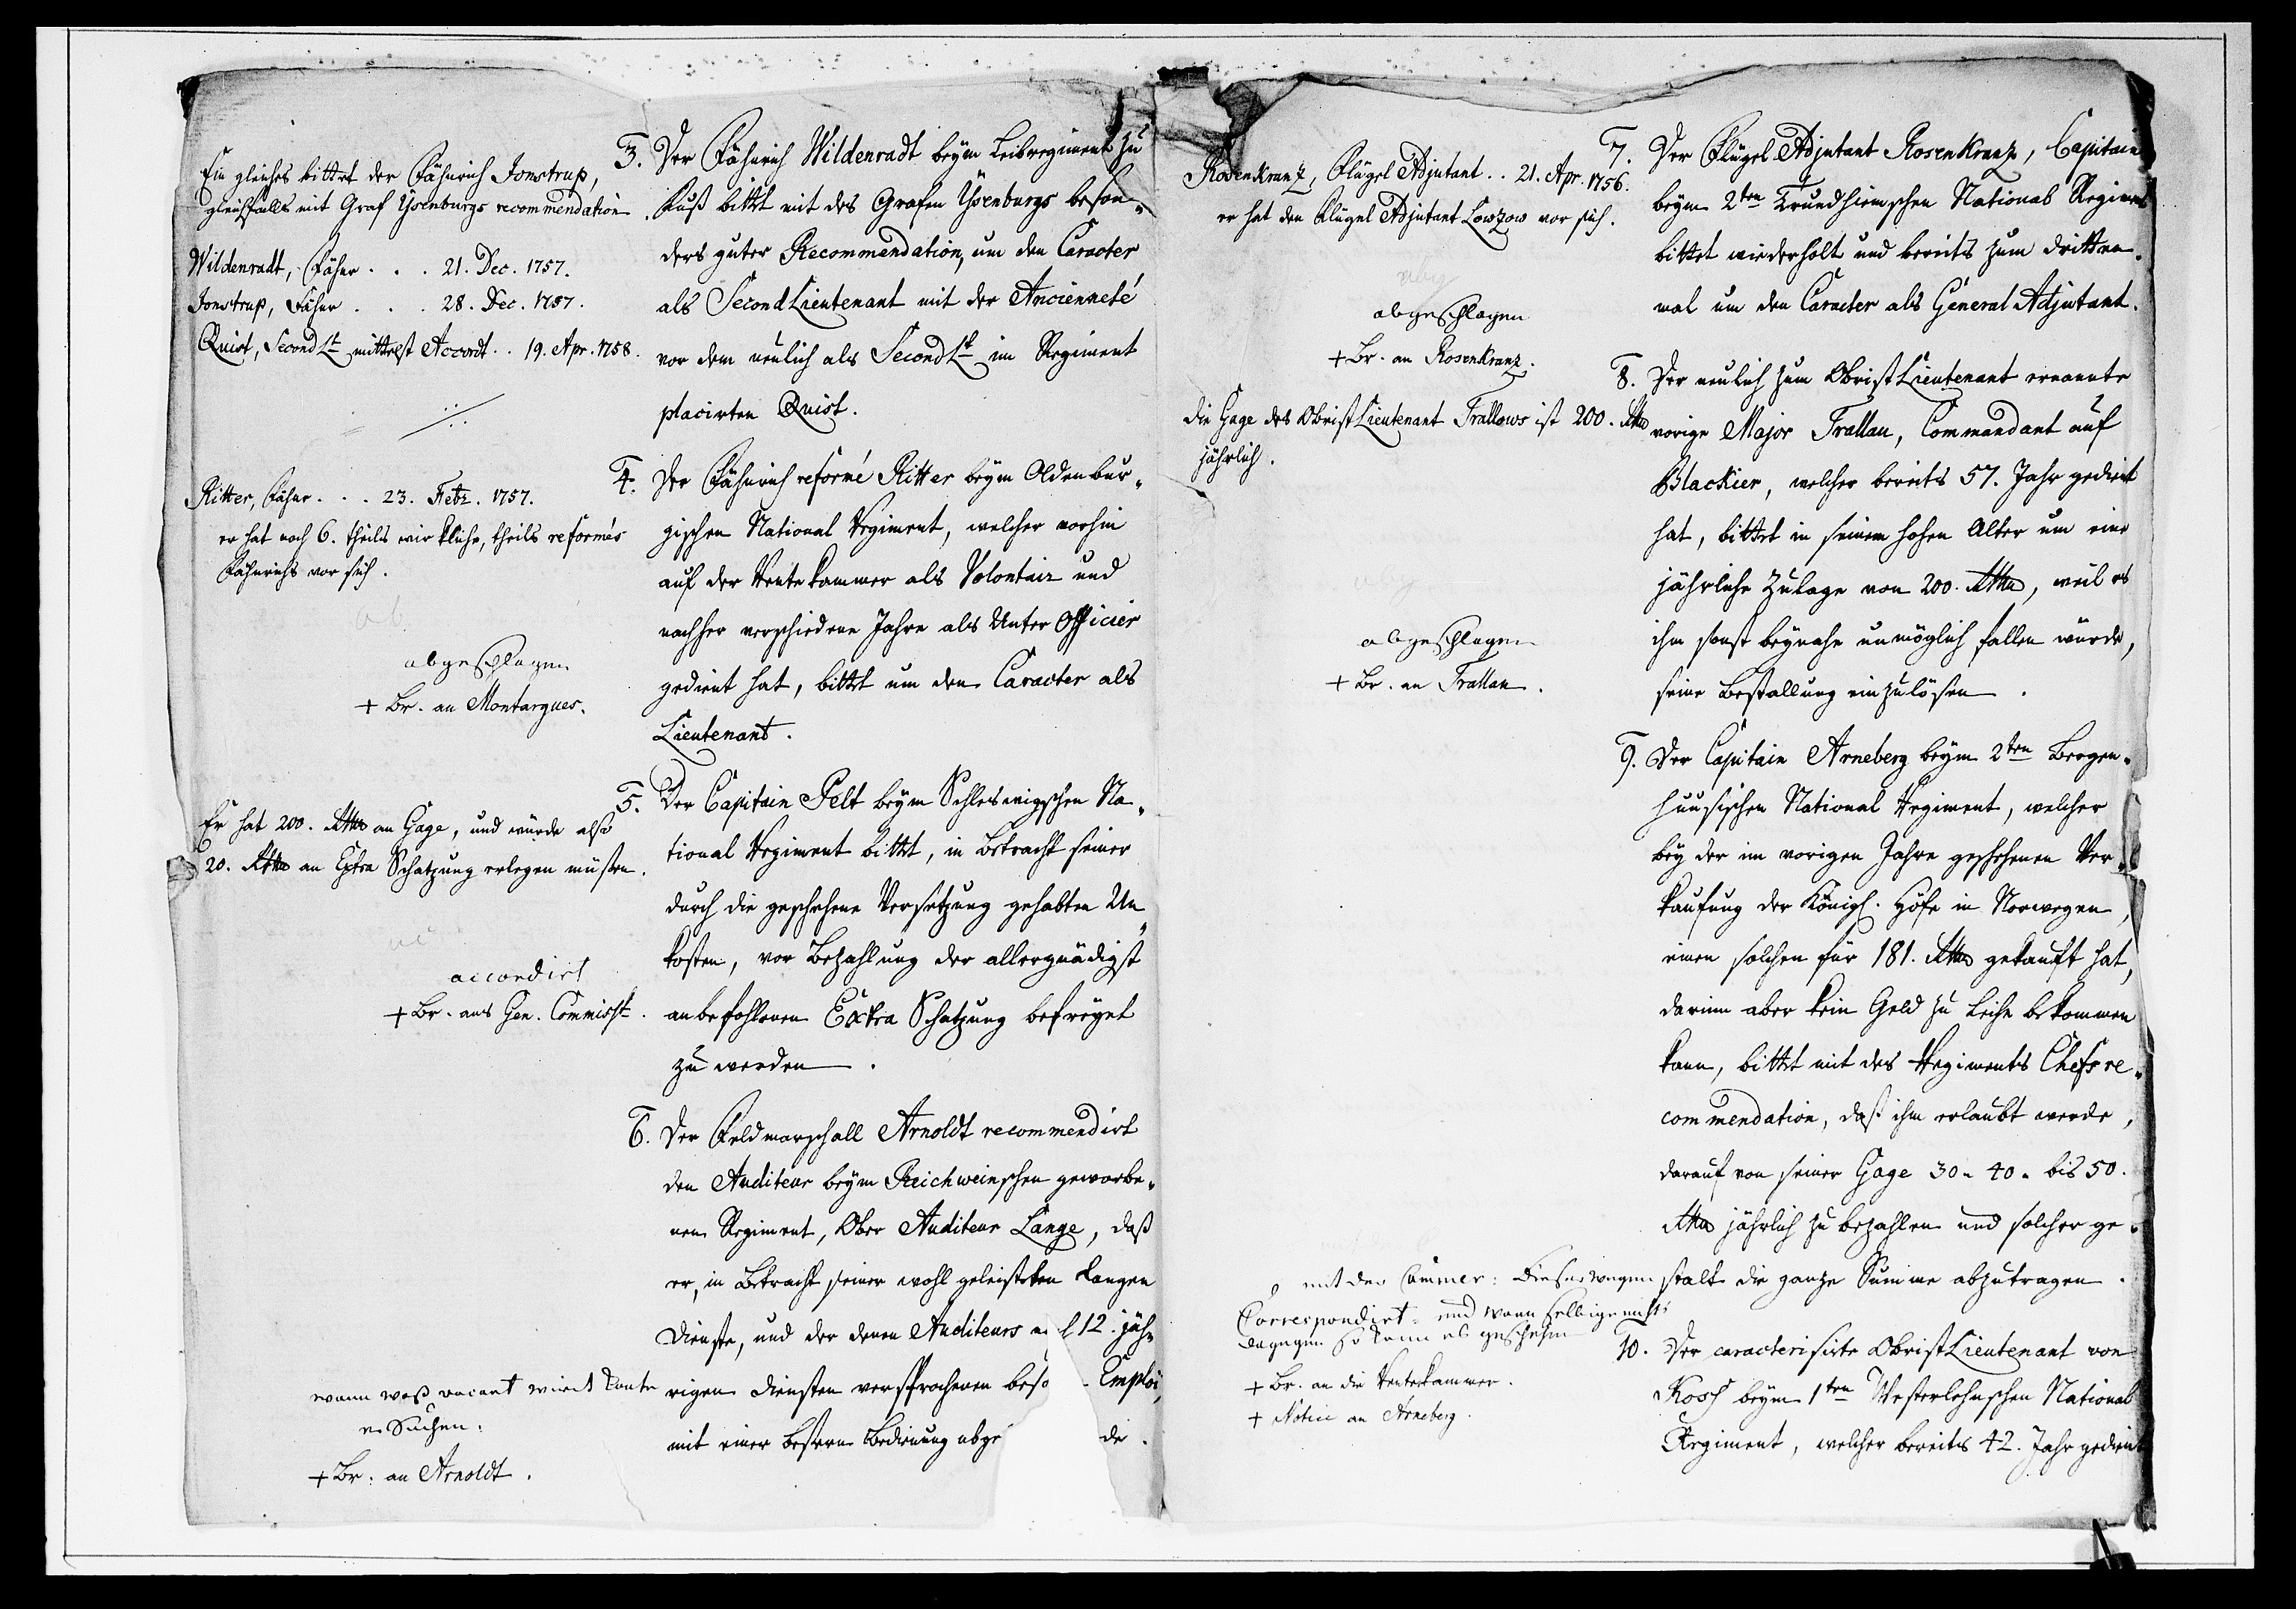 Ein gleiches bittet der Fähnrich Jonstrup,
gleichfalls mit Graf Ysenburgs recommendation.
Wildenradt, Fähnr . . . 21. Dec. 1757.
Jonstrup, Fähnr . . . 28. Dec. 1757.
Quist, Second Lt mittelst Accordt . . 19. Apr. 1758.
Ritter, Fähnr . . . 23. Febr. 1757.
er hat noch 6. theils wirkliche, theils reformés
Fähnrichs vor sich.
abgeschlagen
+ Br. an Montargues.
Er hat 200. Rthlr an Gage, und würde also
20. Rthlr an Extra Schatzung erlegen müssen.
accordirt
+ Br. ans Gen. Commisst.
wann waß vacant wird kante
er Suchen.
+ Br. an Arnoldt.
3. Der Fähnrich Wildenradt beym Leibregiment zu
Fuß bittet mit des Grafen Ysenburgs beson-
ders guter Recommendation, um den Caracter
als Second Lieutenant mit der Ancienneté
vor dem neulich als Second Lt im Regiment
placirten Quist.
4. Der Fähnrich reformé Ritter beym Oldenbur-
gischen National Regiment, welcher vorhin
auf der Rentekammer als Volontair und
nachher verschiedene Jahre als Unter Officier
gedient hat, bittet um den Caracter als
Lieutenant.
5. Der Capitain Pelt beym Schleswigschen Na-
tional Regiment bittet, in Betracht seiner
durch die geschehene Versetzung gehabten Un-
kosten, vor Bezahlung der allergnädigst
anbefohlenen Extra Schatzung befreyet
zu werden.
6. Der Feldmarschall Arnoldt recommendirt
den Auditeur beym Reichweinschen geworbe-
nen Regiment, Ober Auditeur Lange, daß
er, in Betracht seiner wohl geleisteten langen
Dienste, und der denen Auditeurs 12. jäh-
rigen Diensten versprochenen Emploi,
mit einer bessern Bedienung abge de.
Rosenkranz, Flügel Adjutant . . 21. Apr. 1756.
er hat den Flügel Adjutant Lowzow vor sich.
abgeschlagen
+ Br. an Rosenkranz.
Die Gage des Obrist Lieutenant Frallows ist 200. Rthlr
jährlich.
abgeschlagen
+ Br. an Frallau.
mit der Cammer: Dieserwegen
Correspondirt- und wann selbige nichts
dagegen so kann es geschehen
+ Br. an die Rentekammer.
+ Notice an Arneberg.
7. Der Flügel Adjutant Rosenkranz, Capitain
beym 2ten Trundhiemschen National Regiment
bittet wiederholt und bereits zum dritten-
mal um den Caracter als General Adjutant.
8. Der neulich zum Obrist Lieutenant ernannte
vorige Major Frallau, Commandant auf
Blackier, welcher bereits 57. Jahr gedient
hat, bittet in seinem hohen Alter um eine
jährliche Zulage von 200. Rthlr, weil es
ihm sonst beynahe unmöglich fallen würde,
seine Bestallung einzulösen.
9. Der Capitain Arneberg beym 2ten Bergen-
huusischen National Regiment, welcher
bey der im vorigen Jahre geschehenen Ver-
kaufung der Königl. Höfe in Norwegen,
einen solchen für 181. Rthlr gekauft hat,
darinn aber kein Geld zu Leihe bekommen
kann, bittet mit des Regiments Chefs re-
commendation, daß ihm erlaubt werde,
darauf von seiner Gage 30- 40- bis 50.
Rthlr jährlich zu bezahlen und solcher ge-
stalt die ganze Summe abzutragen.
10. Der caracterisirte Obrist Lieutenant von
Kosch beym 1ten Westerlehnschen National
Regiment, welcher bereits 42. Jahr gedient